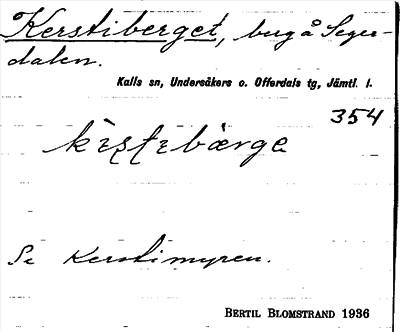 Kerstiberget, berg å Seger-
dalen.
Kalls sn, Undersåkers o. Offerdals tg, Jämtl. l.
354
kìs̨t̨ibæ̀rge
Se Kerstimyren.
BERTIL BLOMSTRAND 1936